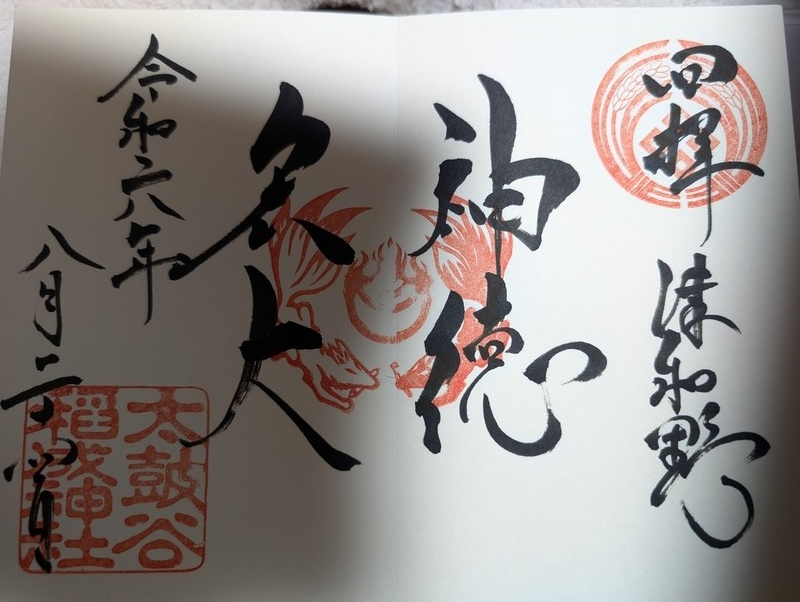 拝
津和野
神徳
大
令和六年
八月二十
太鼓谷
稲成神社